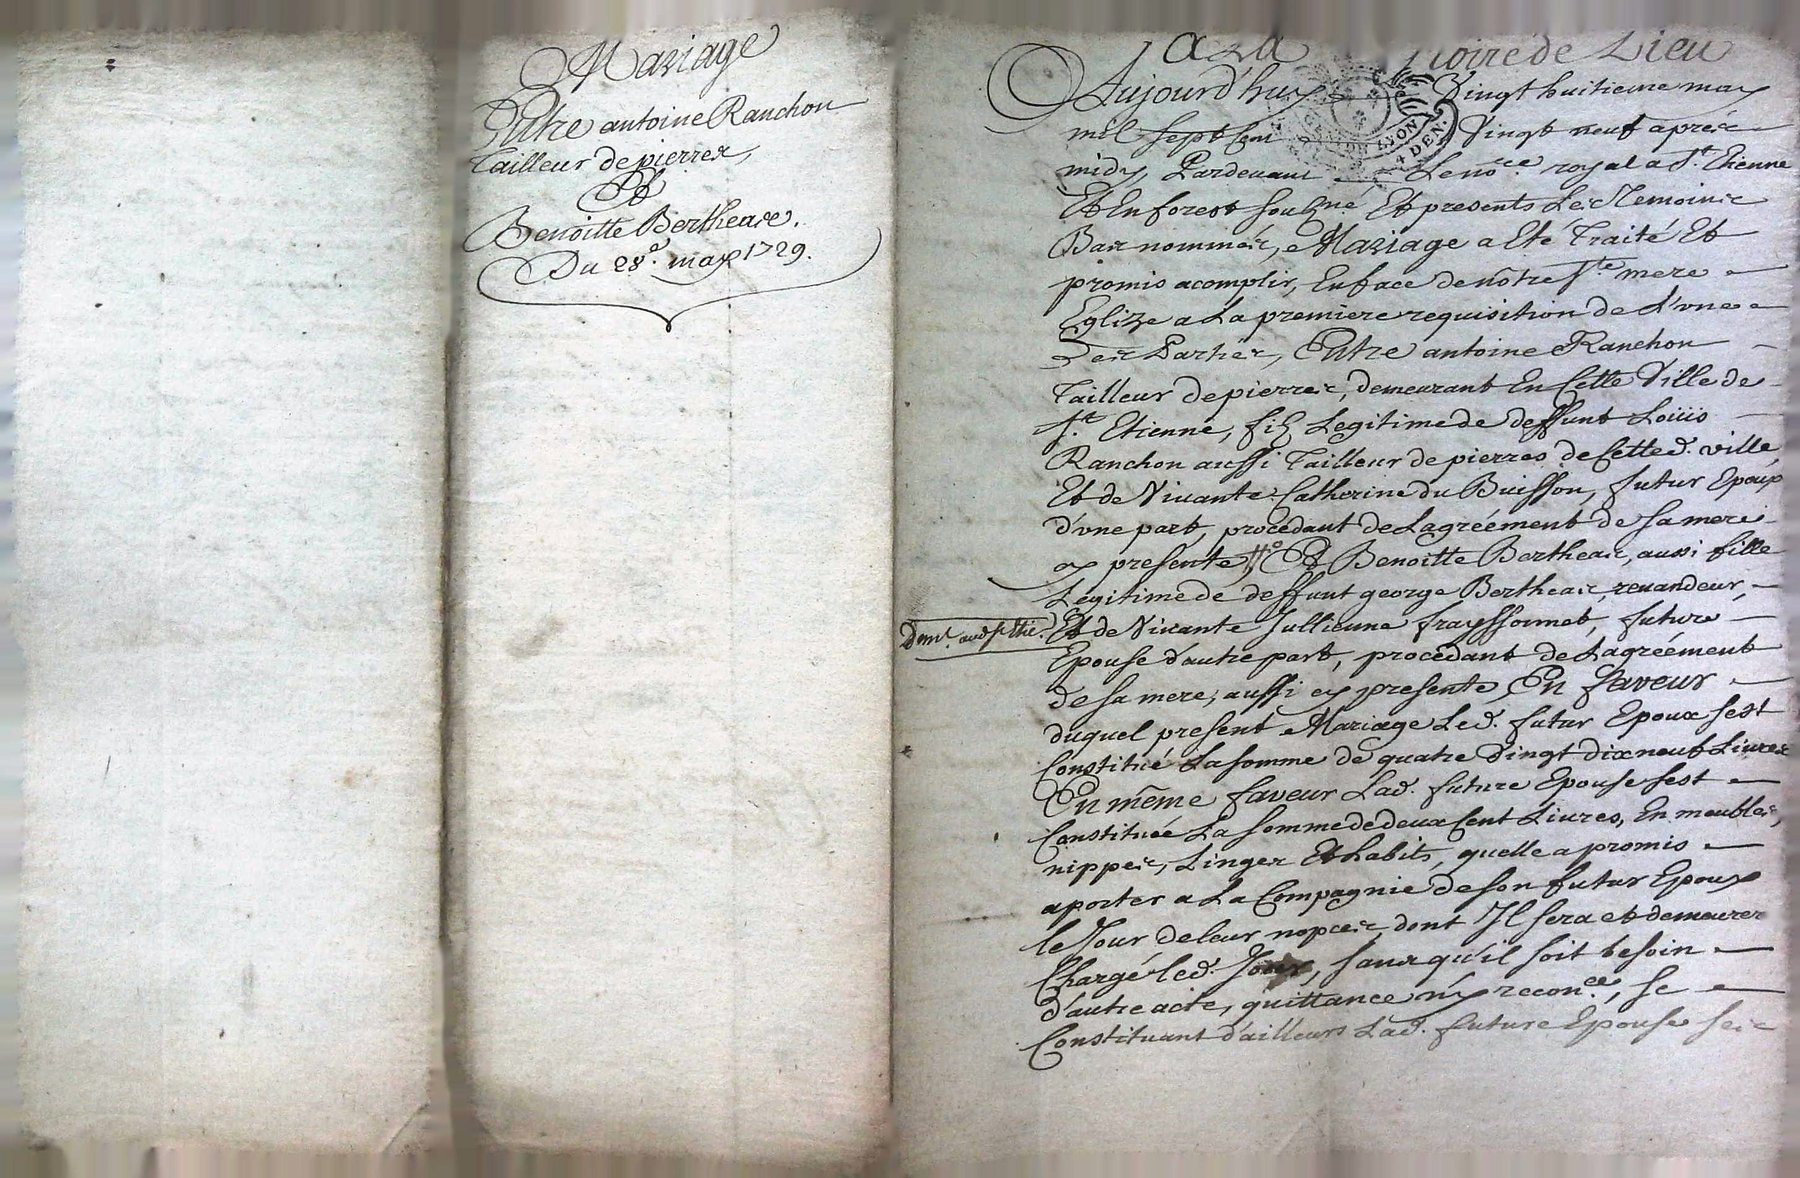 Mariage
Entre antoine Ranchon
Tailleur de pierres,
Et
Benoitte Bertheas.
Du 28e. may 1729.
A la noire de Dieu
Aujourd'huy Vingt huitieme may
mil sept cent Vingt neuf apres
midy, Pardevant Le nore. royal a St. Etienne
Et En forest souszne. Et presents Les Temoins
Bas nommés, Mariage a Eté Traité Et
promis acomplir, En face de nôtre Ste. mere
Eglize a La premiere requisition de L'une
Des Parties, Entre antoine Ranchon
Tailleur de pierres, demeurant En Cette Ville de
St. Etienne, filz Legitime de deffunt Loüis
Ranchon aussi Tailleur de pierres de Cetted. ville,
Et de Vivante Catherine du Buisson, futur Epoux
d'vne part, procedant de Lagréement de sa mere
cy presente, Et Benoitte Bertheas, aussi fille
Legitime de deffunt george Bertheas, revandeur,
Demt. aud. st. Etie. Et de Vivante Jullienne frayssonnet, future
Epouse d'autre part, procedant de Lagréement
de sa mere, aussi cy presente, En faveur
duquel present Mariage Led. futur Epoux sest
Constitué La somme de quatre Vingt dix neuf Livres
En même faveur Lad. future Epouse sest
Constituée La somme de deux Cent Livres, En meubles,
nippes, Linges Et habits, quelle a promis
aporter a La Compagnie de son futur Epoux
le Jour de leur nopces, dont Il sera et demeurer
Chargé led. Jour, sans qu'il soit besoin
d'autre acte, quittance ny reconce., se
Constituant d'ailleurs Lad. future Epouse ses